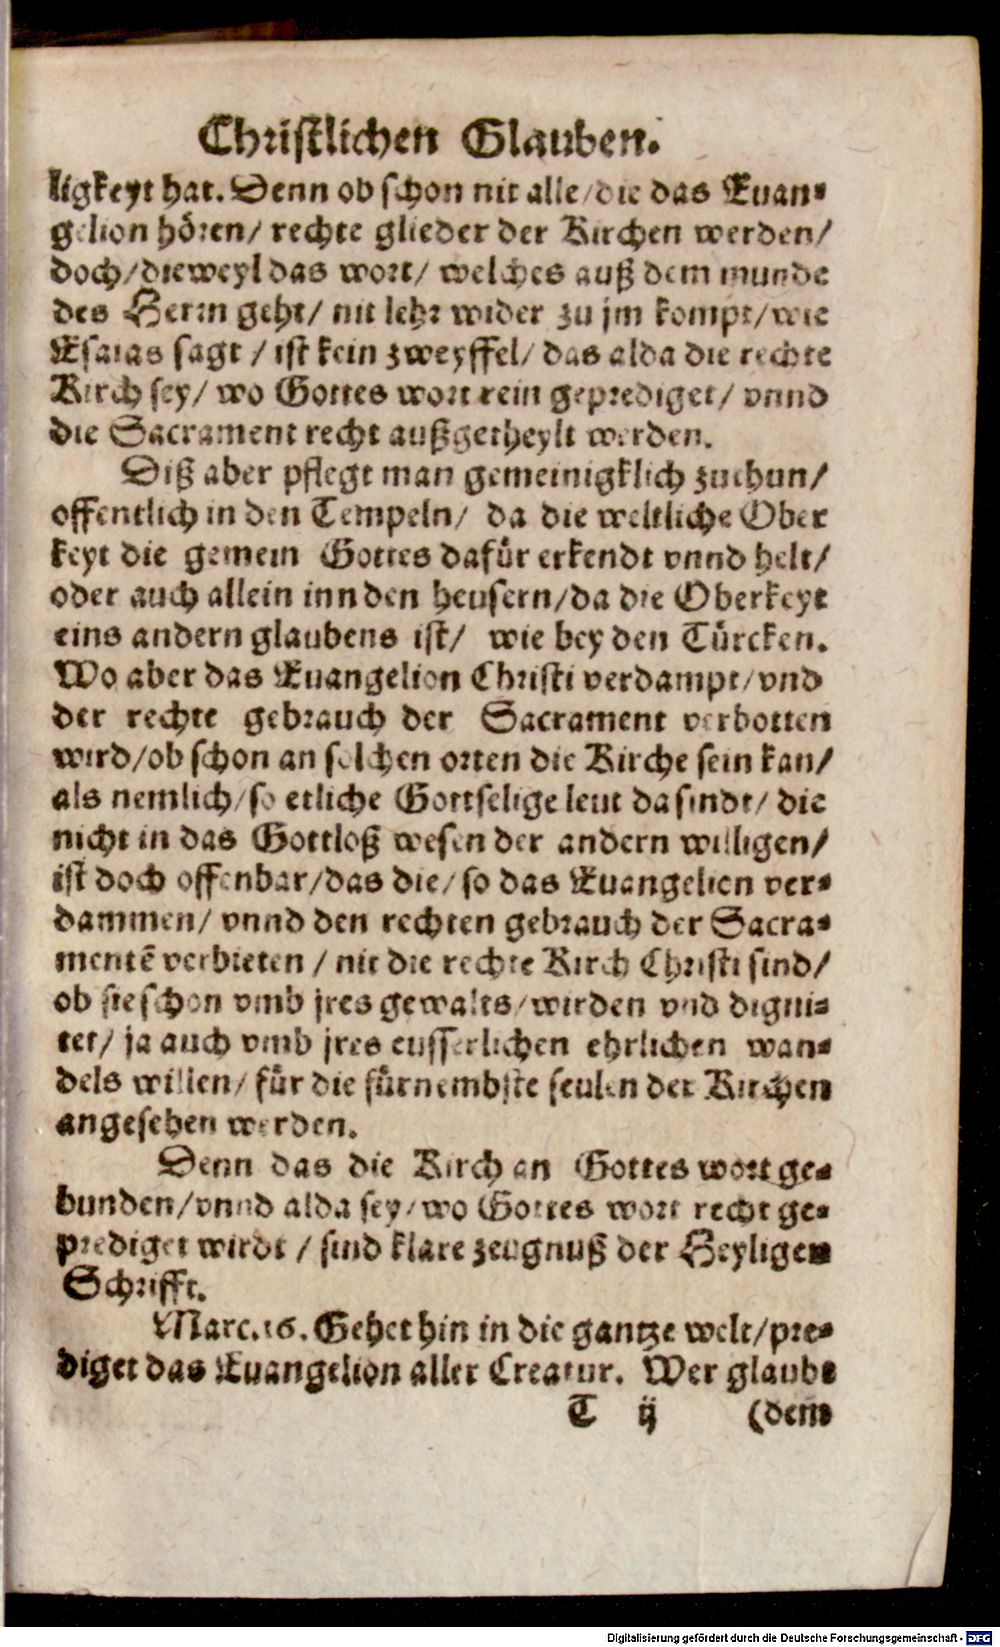 Christlichen Glauben.
ligkeyt hat. Denn ob schon nit alle/die das Euan-
gelion hören/ rechte glieder der Kirchen werden/
doch/dieweyl das wort/ welches auß dem munde
des Herrn geht/ nit lehr wider zu jm kompt/wie
Esaias sagt / ist kein zweyffel/ das alda die rechte
Kirch sey/ wo Gottes wort rein geprediget/ vnnd
die Sacrament recht außgetheylt werden.
Diß aber pflegt man gemeinigklich zuthun/
offentlich in den Tempeln/ da die weltliche Ober
keyt die gemein Gottes dafür erkendt vnnd helt/
oder auch allein inn den heusern/da die Oberkeyt
eins andern glaubens ist/ wie bey den Türcken.
Wo aber das Euangelion Christi verdampt/vnd
der rechte gebrauch der Sacrament verbotten
wird/ob schon an solchen orten die Kirche sein kan/
als nemlich/so etliche Gottselige leut da sindt/ die
nicht in das Gottloß wesen der andern willigen/
ist doch offenbar/das die/ so das Euangelion ver-
dammen/ vnnd den rechten gebrauch der Sacra-
mentē verbieten / nit die rechte Kirch Christi sind/
ob sie schon vmb jres gewalts/wirden vnd digni-
tet/ ja auch vmb jres eusserlichen ehrlichen wan-
dels willen/ für die fürnembste seulen der Kirchen
angesehen werden.
Denn das die Kirch an Gottes wort ge-
bunden/vnnd alda sey/wo Gottes wort recht ge-
prediget wirdt / sind klare zeugnuß der Heyligen
Schrifft.
Marc.16. Gehet hin in die gantze welt/pre-
diget das Euangelion aller Creatur. Wer glaubt
T ij (dem
Digitalisierung gefördert durch die Deutsche Forschungsgemeinschaft - DFG